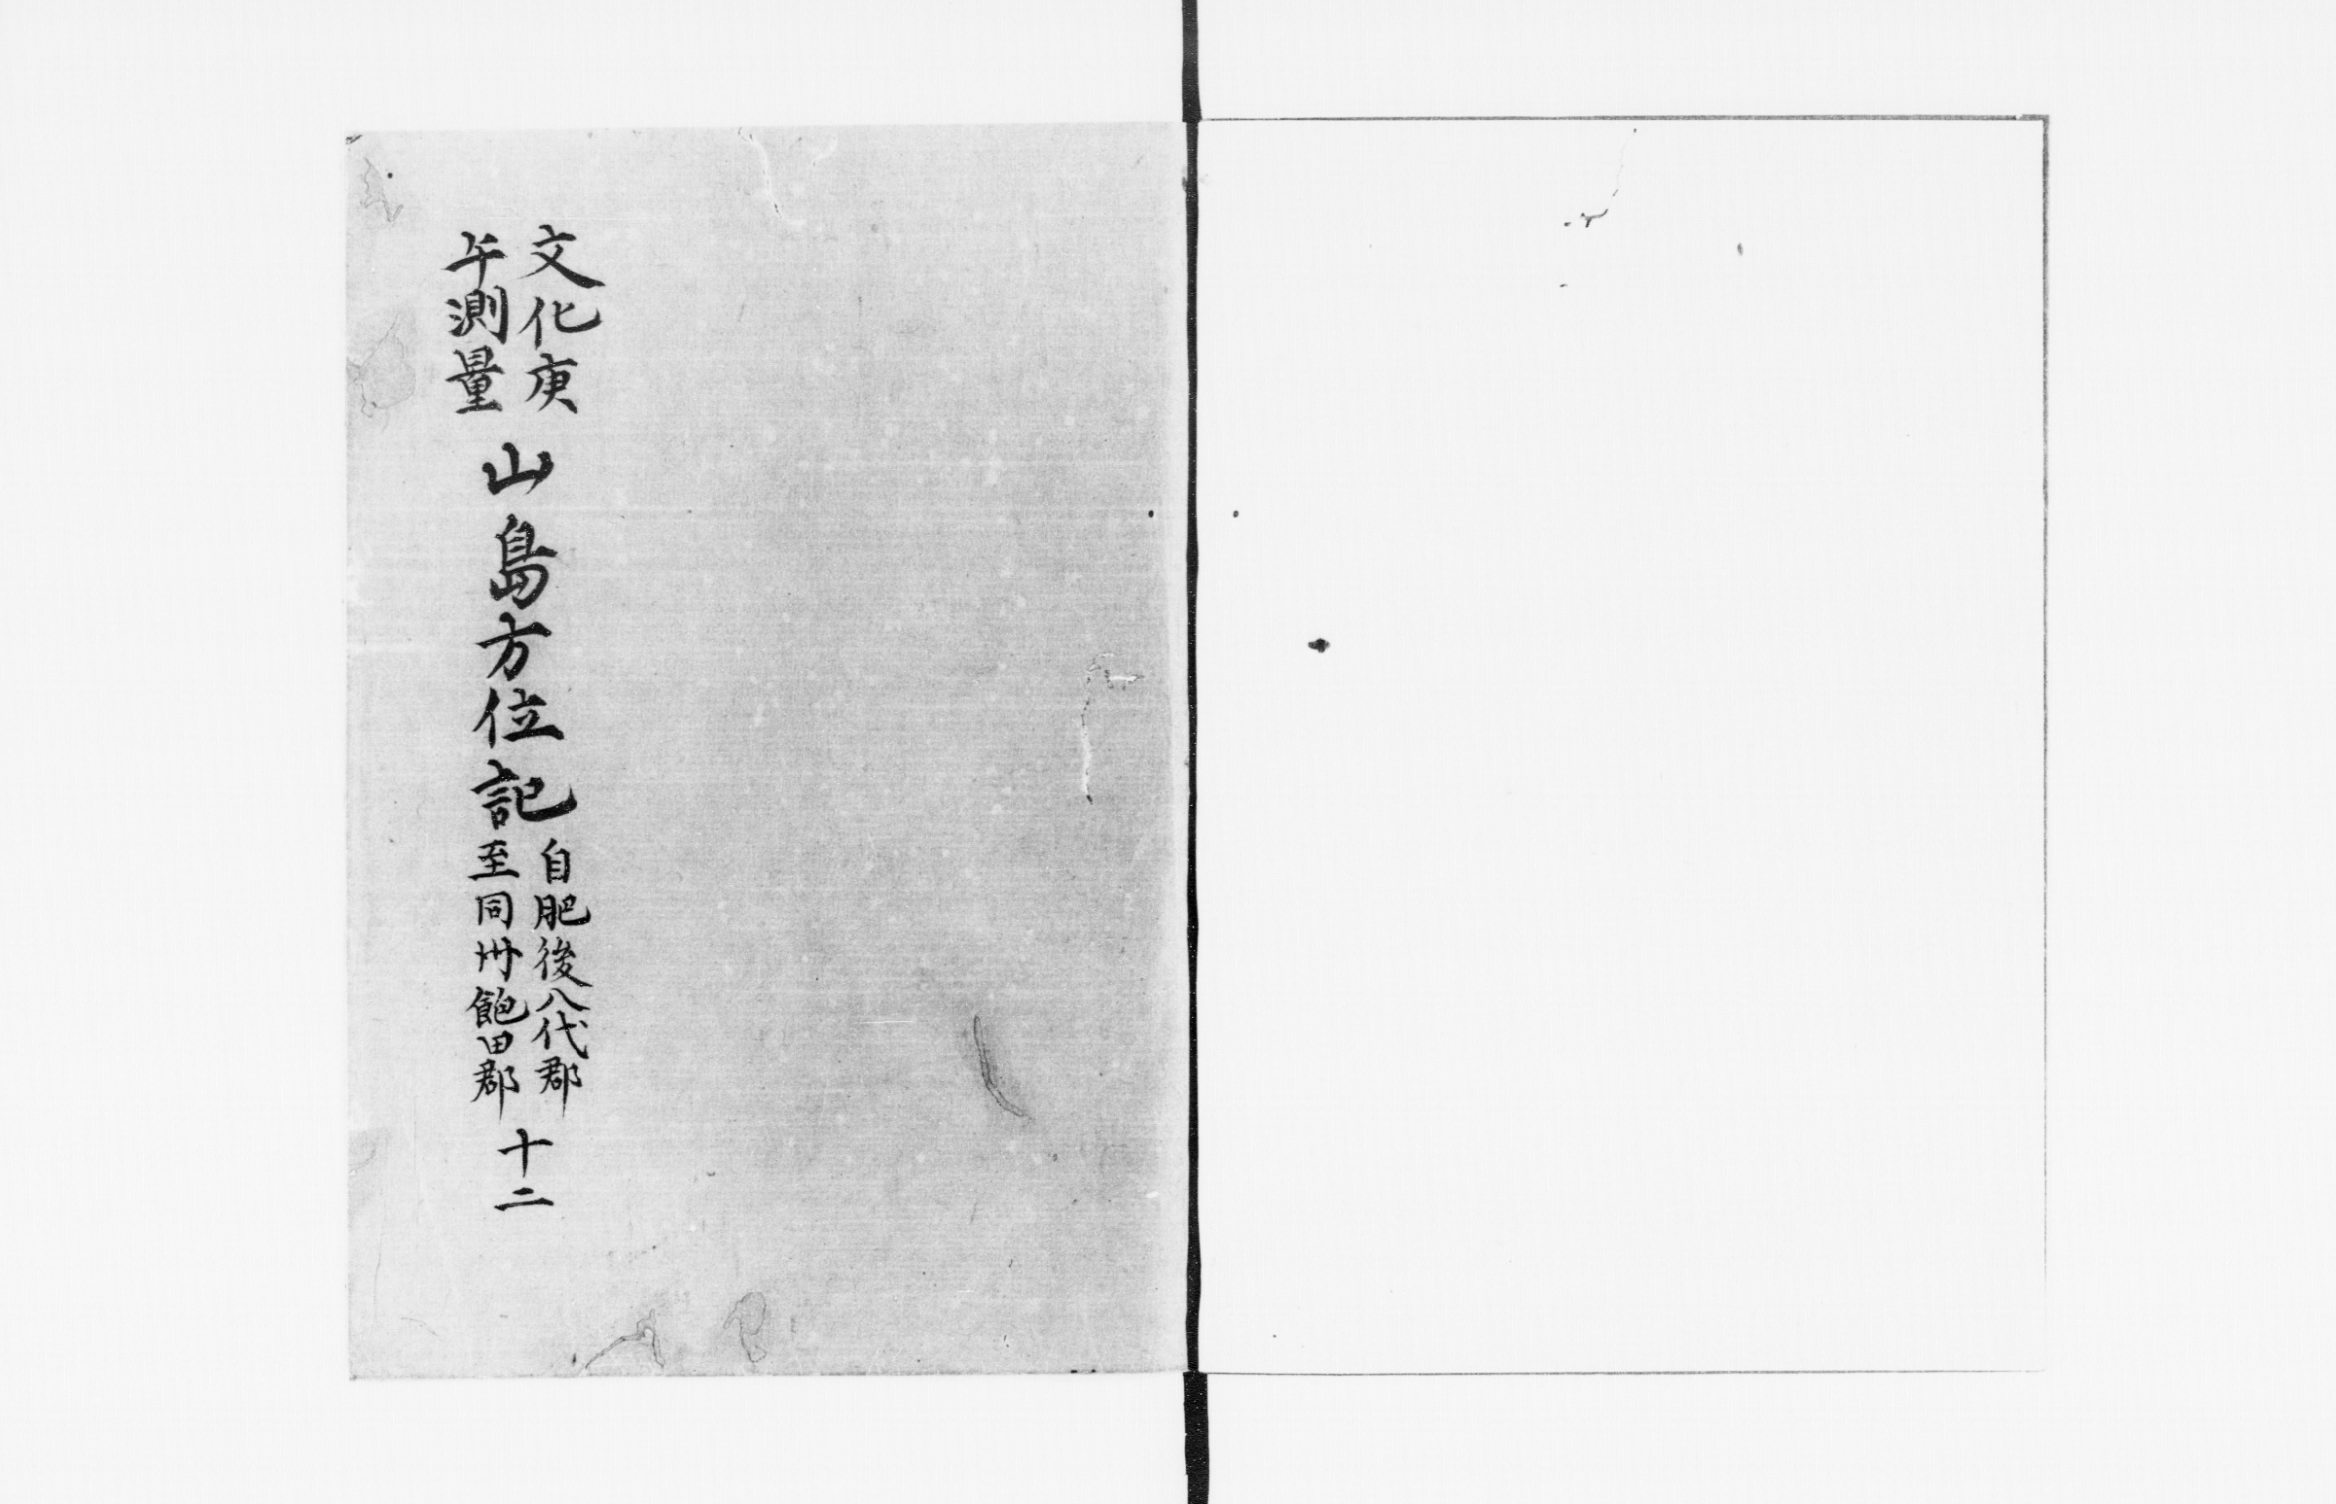 文化庚
午測量
山島方位記
自肥後八代郡
至同州飽田郡
十二